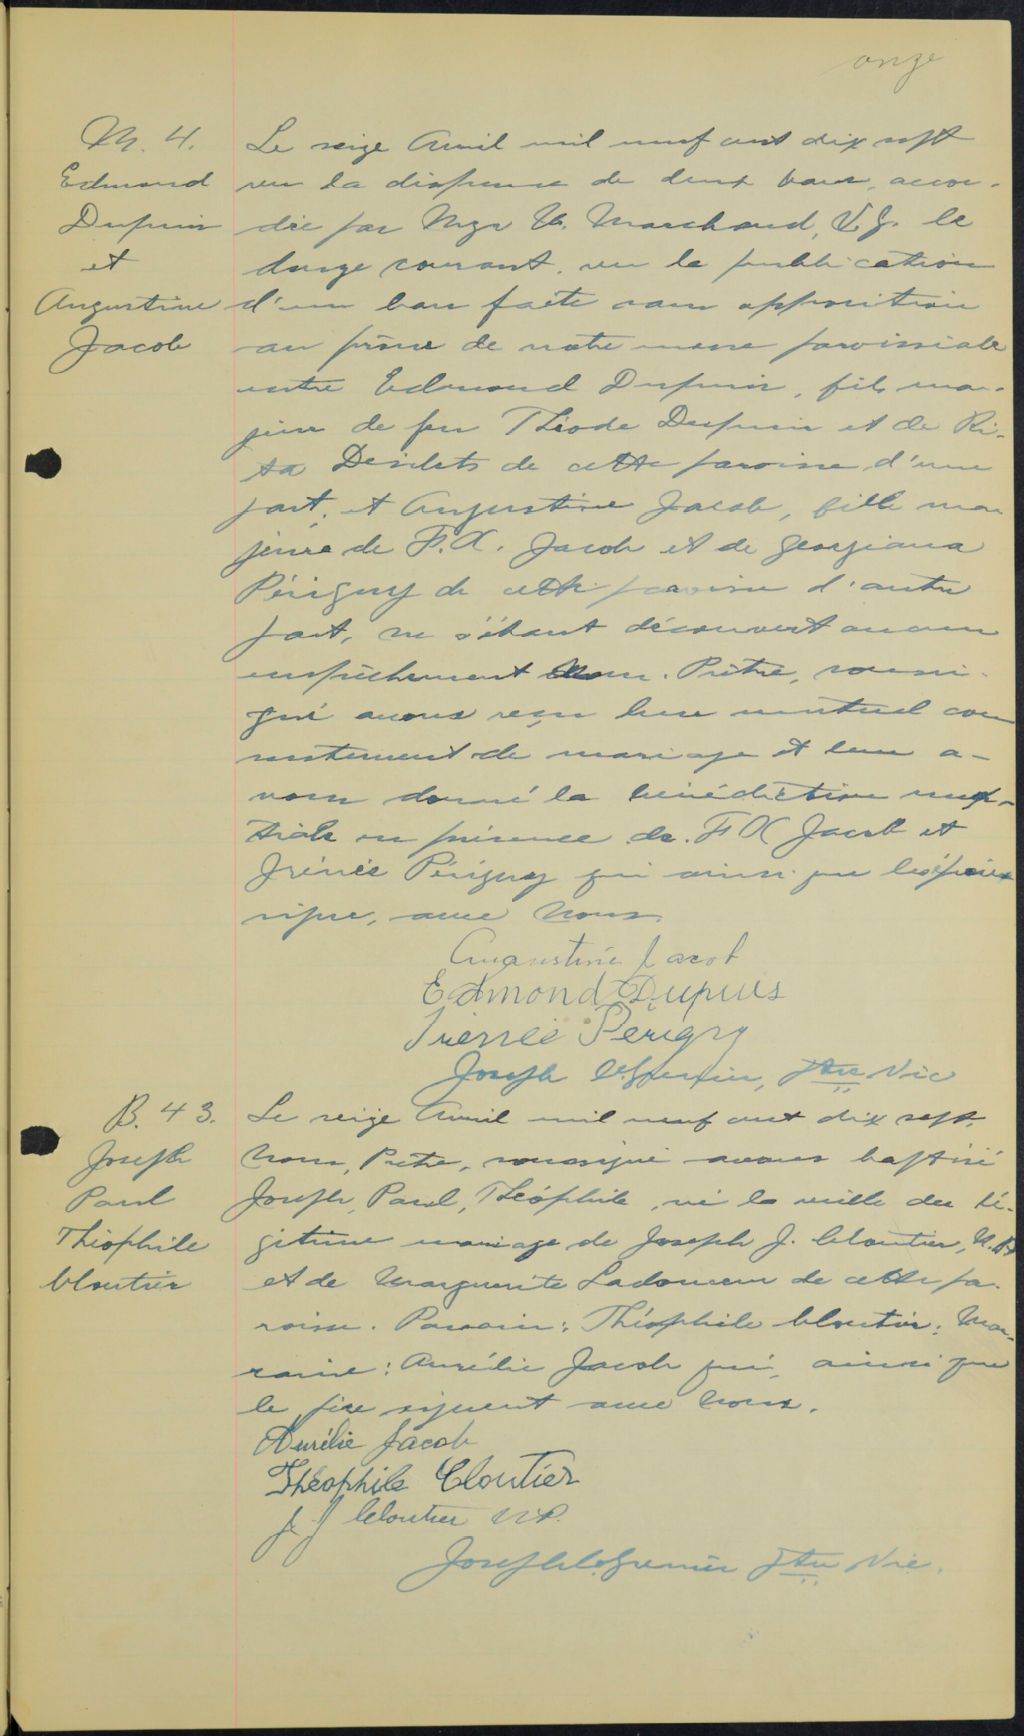 onze
M. 4.
Edmond
Dupuis
et
Augustine
Jacob
Le seize Avril mil neuf cent dix sept
vu la dispense de deux bans, accor-
dée par Mgr U. Marchand, V.G. le
douze courant, vu la publication
d'un ban faite sans opposition
au prône de notre messe paroissiale
entre Edmond Dupuis, fils ma-
jeur de feu Théode Dupuis et de Ri-
ta Desilets de cette paroisse d'une
part, et Augustine Jacob, fille ma
jeure de F.X. Jacob et de Georgiana
Périgny de cette paroisse d'autre
part, ne s'étant découvert aucun
empêchement Nous. Prêtre, soussi-
gné avons reçu leur mutuel con
sentement de mariage et leur a-
vons donné la bénédiction nup-
tiale en présence de F X Jacob et
Irénée Périgny qui ainsi que les époux
signe, avec Nous.
Augustine Jacob
Edmond Dupuis
Irenée Perigny
Joseph Grenier, Ptre Vic
B. 43.
Joseph
Paul
Théophile
Cloutier
Le seize Avril mil neuf cent dix sept,
Nous, Prêtre, soussigné avons baptisé
Joseph, Paul, Théophile, né la veille du lé-
gitime mariage de Joseph J. Cloutier, N.P.
et de Marguerite Ladouceur de cette pa-
roisse. Parrain: Théophile Cloutier; Mar-
raine: Aurélie Jacob qui, ainsi que
le père signent avec Nous.
Aurélie Jacob
Théophile Cloutier
J. J Cloutier N.P.
Joseph Grenier Ptre Vic.